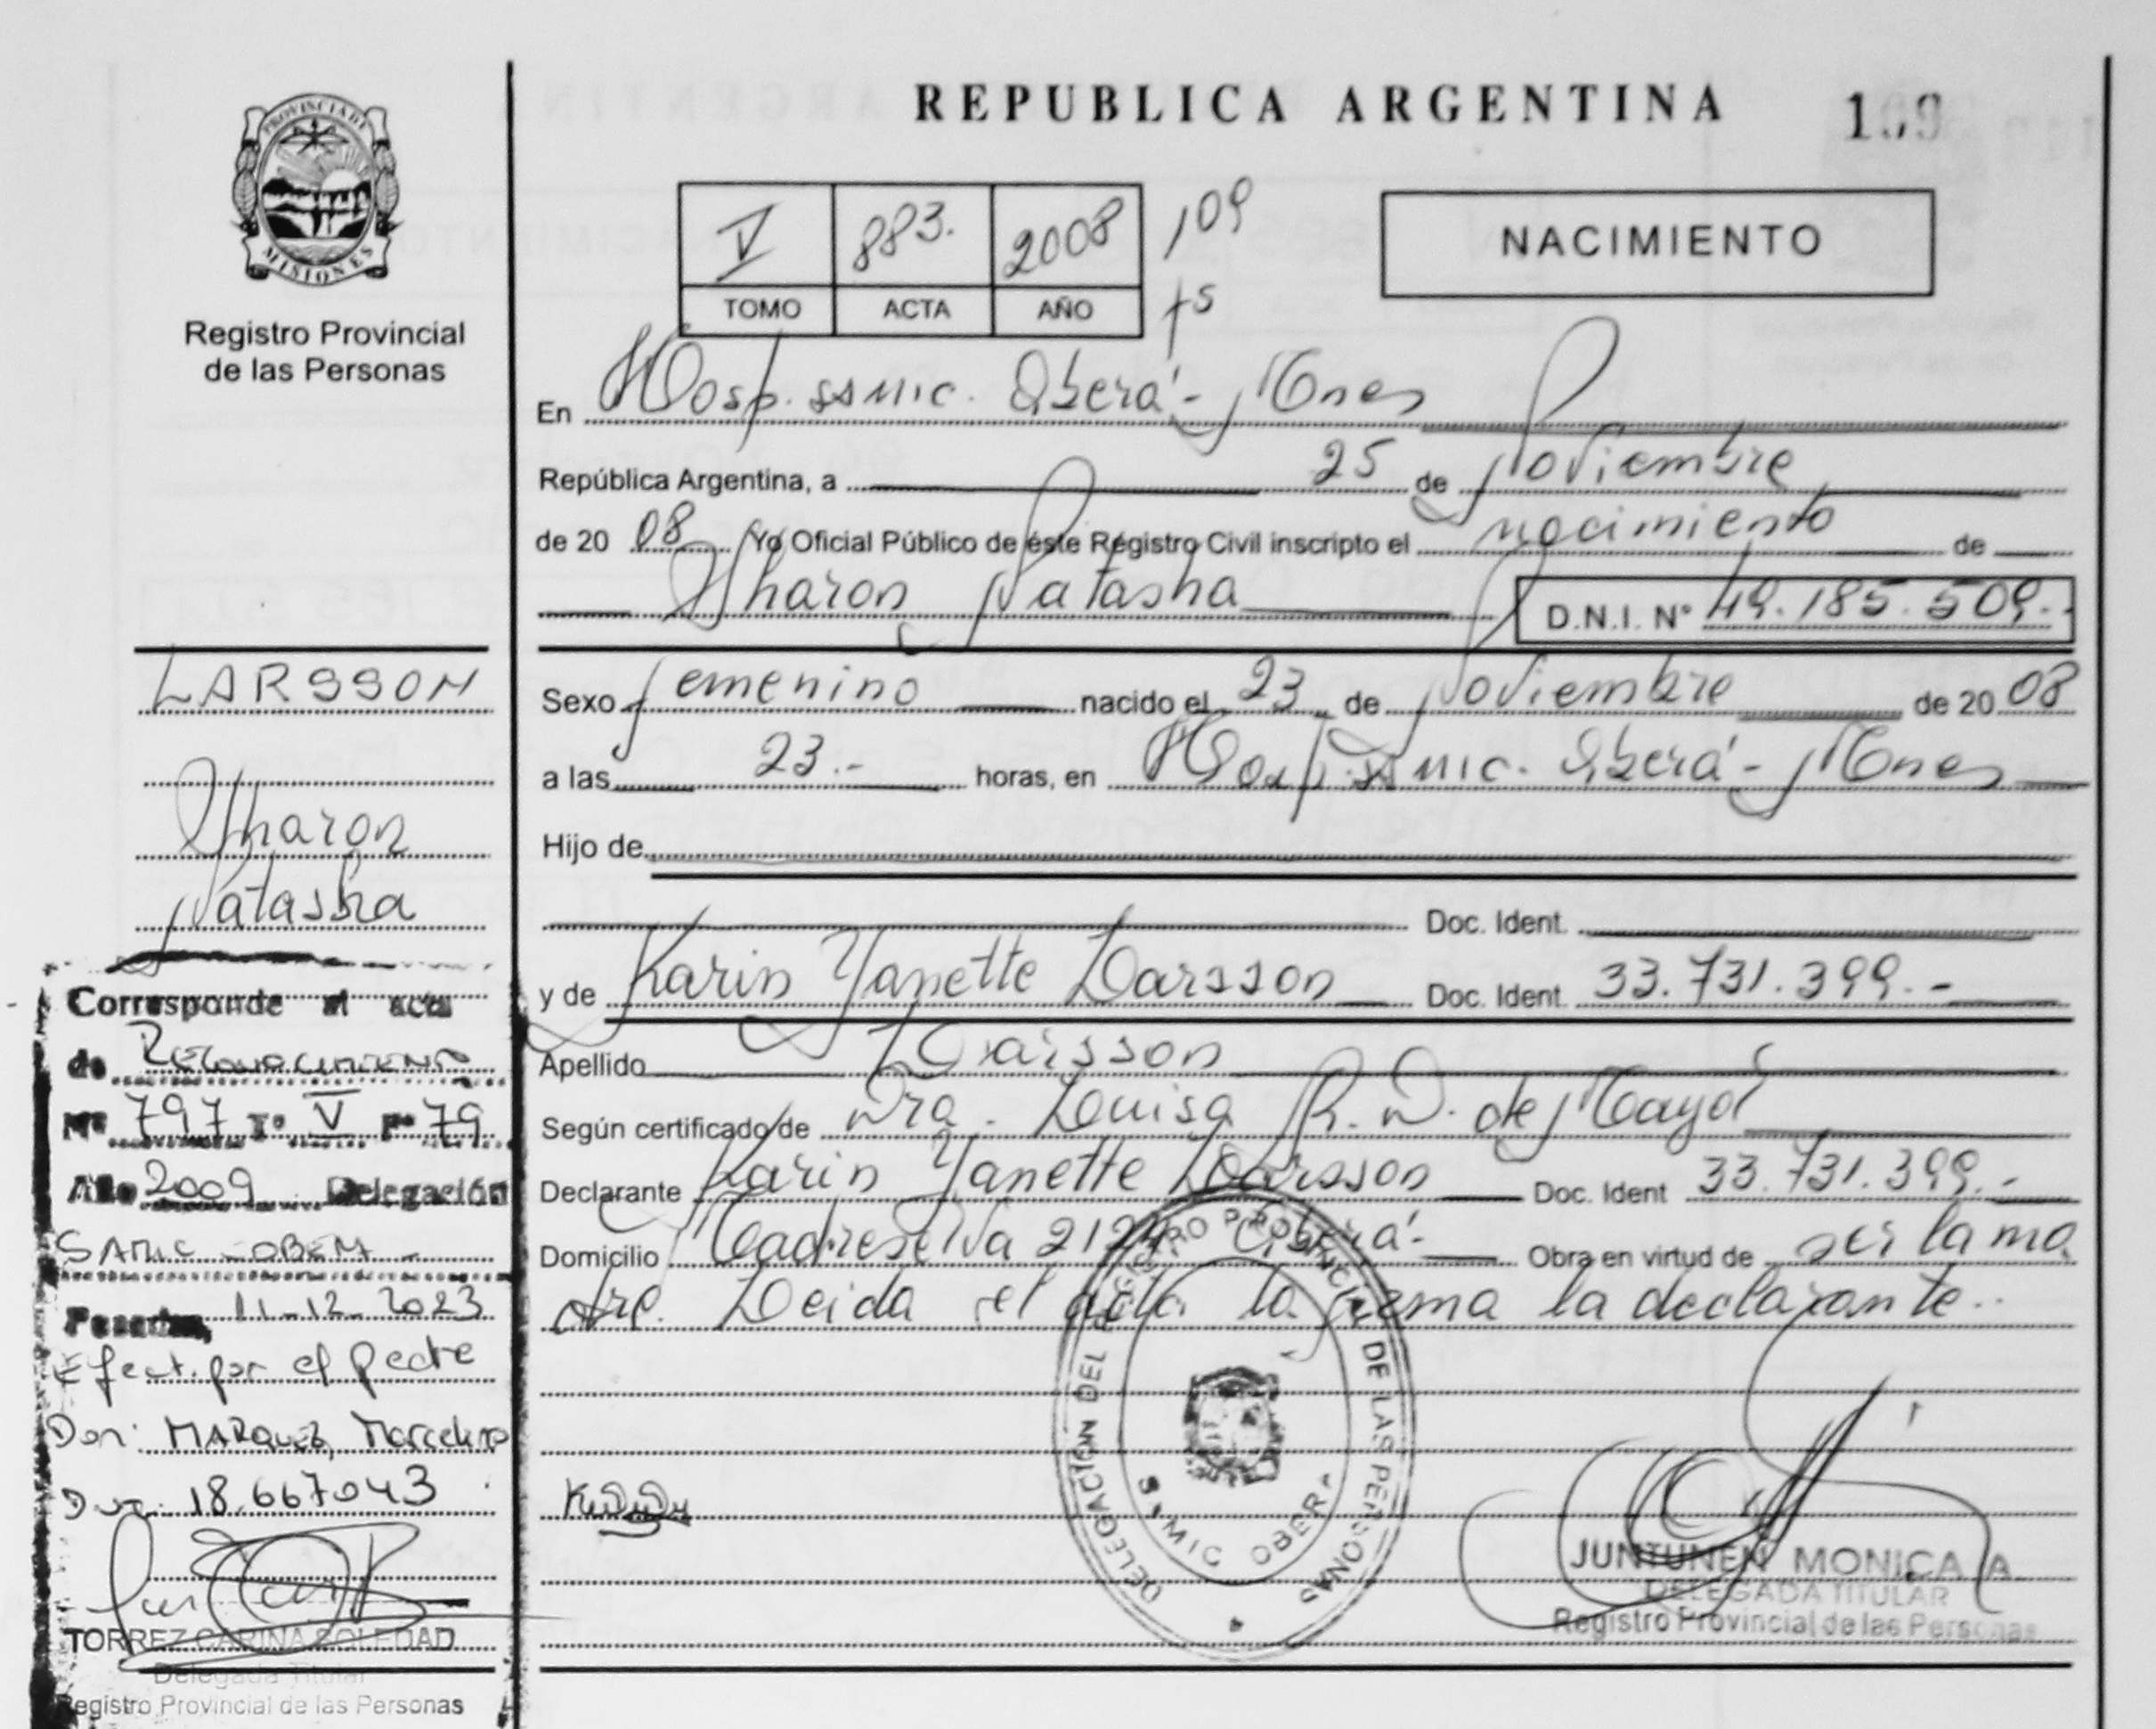 PROVINCIA DE
MISIONES
Registro Provincial
de las Personas
REPUBLICA ARGENTINA
V 883. 2008 109
TOMO ACTA AÑO fs
NACIMIENTO
En Hosp. SAMIC. Oberá - Mnes
República Argentina, a 25 de Noviembre
de 20 08 Yo Oficial Público de éste Registro Civil inscripto el nacimiento de
Sharon Natasha D.N.I. Nº 49.185.509.-
Sexo femenino nacido el 23 de Noviembre de 20 08
a las 23.- horas, en Hosp. SAMIC. Oberá - Mnes
Hijo de
Doc. Ident.
y de Karin Yanette Larsson Doc. Ident. 33.731.399.-
Apellido Larsson
Según certificado de Dra. Luisa R. D. de Mayol
Declarante Karin Yanette Larsson Doc. Ident 33.731.399.-
Domicilio Madreselva Oberá- Obra en virtud de ser la ma
dre. Leida el acta la firma la declarante..
DELEGACIÓN DEL REGISTRO PROVINCIAL DE LAS PERSONAS
SAMIC OBERA
JUNTUNEN MONICA A
DELEGADA TITULAR
Registro Provincial de las Personas
LARSSON
Sharon
Natasha
Corresponde al acta
de Reconocimiento
Nº 797 Tº V Fº 79
Año 2009 Delegación
SAMIC - OBERA -
Posadas, 11-12-2023
Efect. por el padre
Don: MARQUEZ, Marcelino
18.667043
TORREZ CARINA SOLEDAD
Delegada Titular
Registro Provincial de las Personas